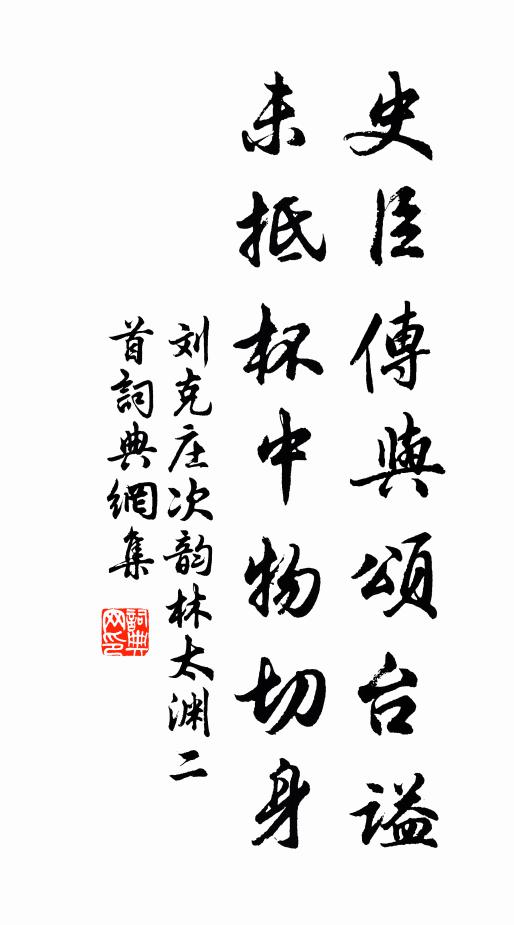 史臣傳與頌台謚
未抵杯中物切身
刘克庄次韵林太渊二
首詞典網集
詞典
网印